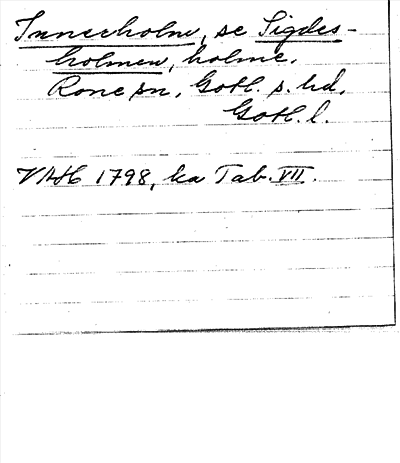 Innerholm, se Sigdes-
holmen, holme.
Rone sn, Gotl. s. hd,
Gotl. l.
VAH 1798, ka Tab. VII.